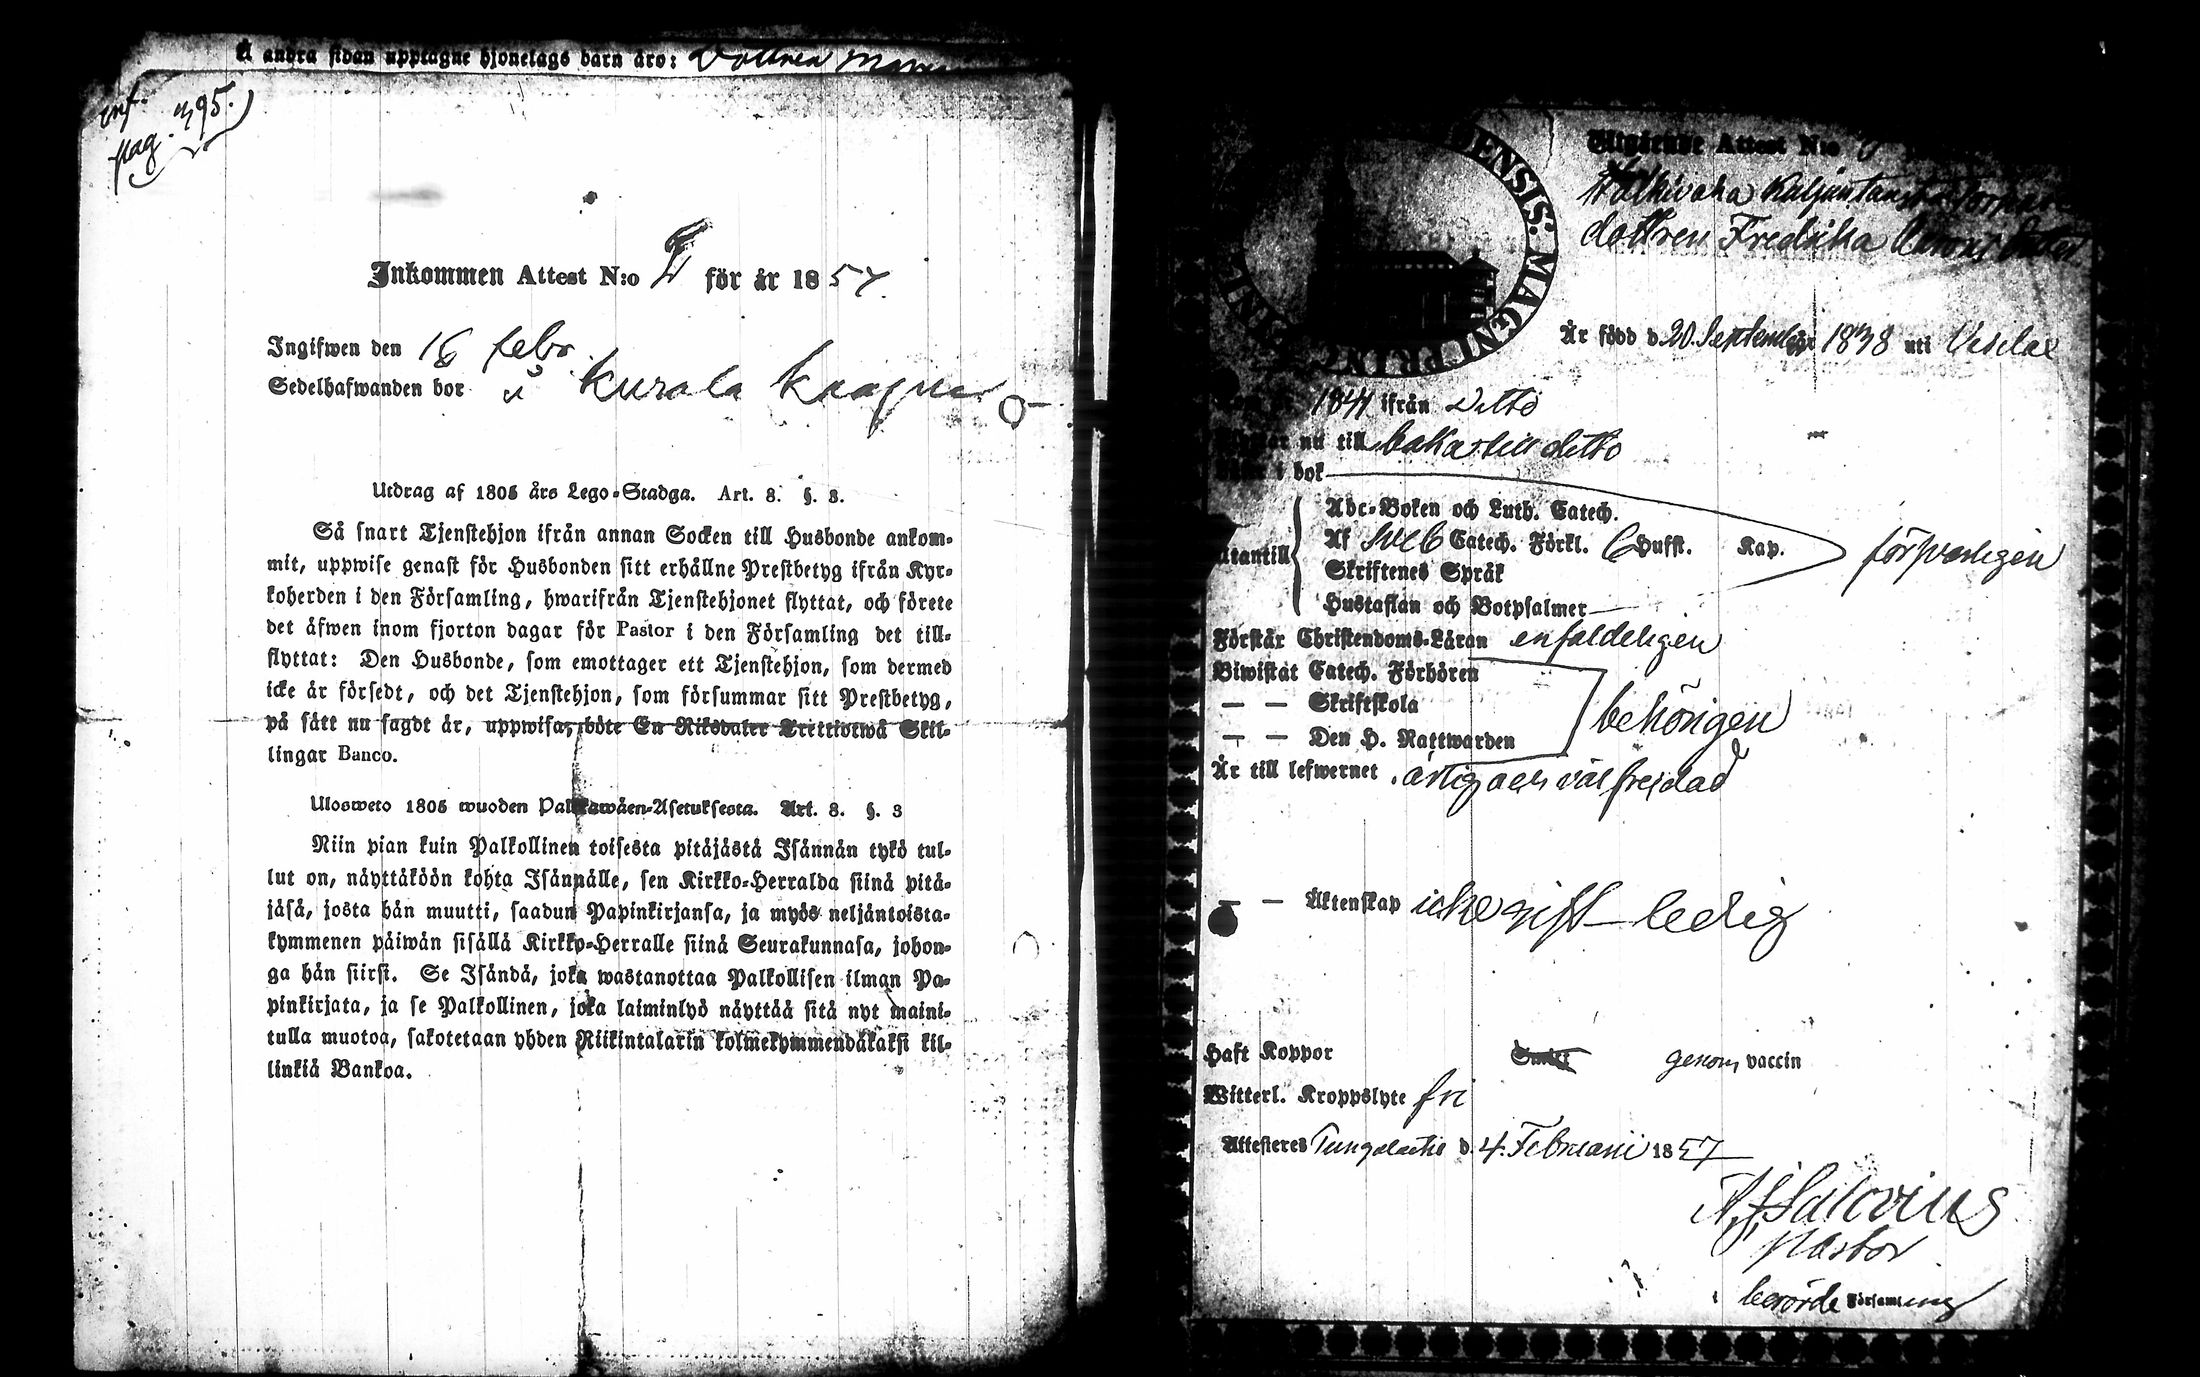 Å andra sidan upptagne hjonelags barn äro: Dottren
pag. 395.
Inkommen Attest N:o för år 1857.
Ingifwen den 16 febr.
Sedelhafwanden bor i Kurala
Utdrag af 1805 års Lego-Stadga. Art. 8. §. 3.
Så snart Tjenstehjon ifrån annan Socken till Husbonde ankom-
mit, uppwise genast för Husbonden sitt erhållne Prestbetyg ifrån Kyr-
koherden i den Församling, hwarifrån Tjenstehjonet flyttat, och förete
det äfwen inom fjorton dagar för Pastor i den Församling det till-
flyttat: Den Husbonde, som emottager ett Tjenstehjon, som dermed
icke är försedt, och det Tjenstehjon, som försummar sitt Prestbetyg,
på sätt nu sagdt är, uppwisa, böte En Riksdaler Trettiotwå Skil-
lingar Banco.
Ulosweto 1805 wuoden Palkkawäen-Asetuksesta. Art. 8. §. 3
Niin pian kuin Palkollinen toisesta pitäjästä Isännän tykö tul-
lut on, näyttäköön kohta Isännälle, sen Kirkko-Herralda siinä pitä-
jäsä, josta hän muutti, saadun Papinkirjansa, ja myös neljäntoista-
kymmenen päiwän sisällä Kirkko-Herralle siinä Seurakunnasa, johon-
ga hän siirsi. Se Isändä, joka wastanottaa Palkollisen ilman Pa-
pinkirjata, ja se Palkollinen, joka laiminlyö näyttää sitä nyt maini-
tulla muotoa, sakotetaan yhden Riikintalarin kolmekymmendäkaksi kil-
linkiä Bankoa.
DENSIS: MAGNI PRIN
Utgående Attest N:o
dottren Fredrika
Är född d. 20. September 1838 uti
1841 ifrån ditto
nu till baka till ditto
i bok
Abc-Boken och Luth. Catech.
Af Sveb Catech. Förkl. 6 Hufst. Kap. försvarligen
Utantill
Skriftenes Språk
Hustaflan och Botpsalmer
Förstår Christendoms-Läran enfaldeligen
Biwistat Catech. Förhören
— — Skriftskola behörigen
— — Den H. Nattwarden
Är till lefwernet ärlig och väl frejdad
— — Äktenskap icke gift – ledig
Haft Koppor genom vaccin
Witterl. Kroppslyte fri
Attesteras Tungalaitio d. 4. Februarii 1857
Salovius
Pastor
berörde Församling